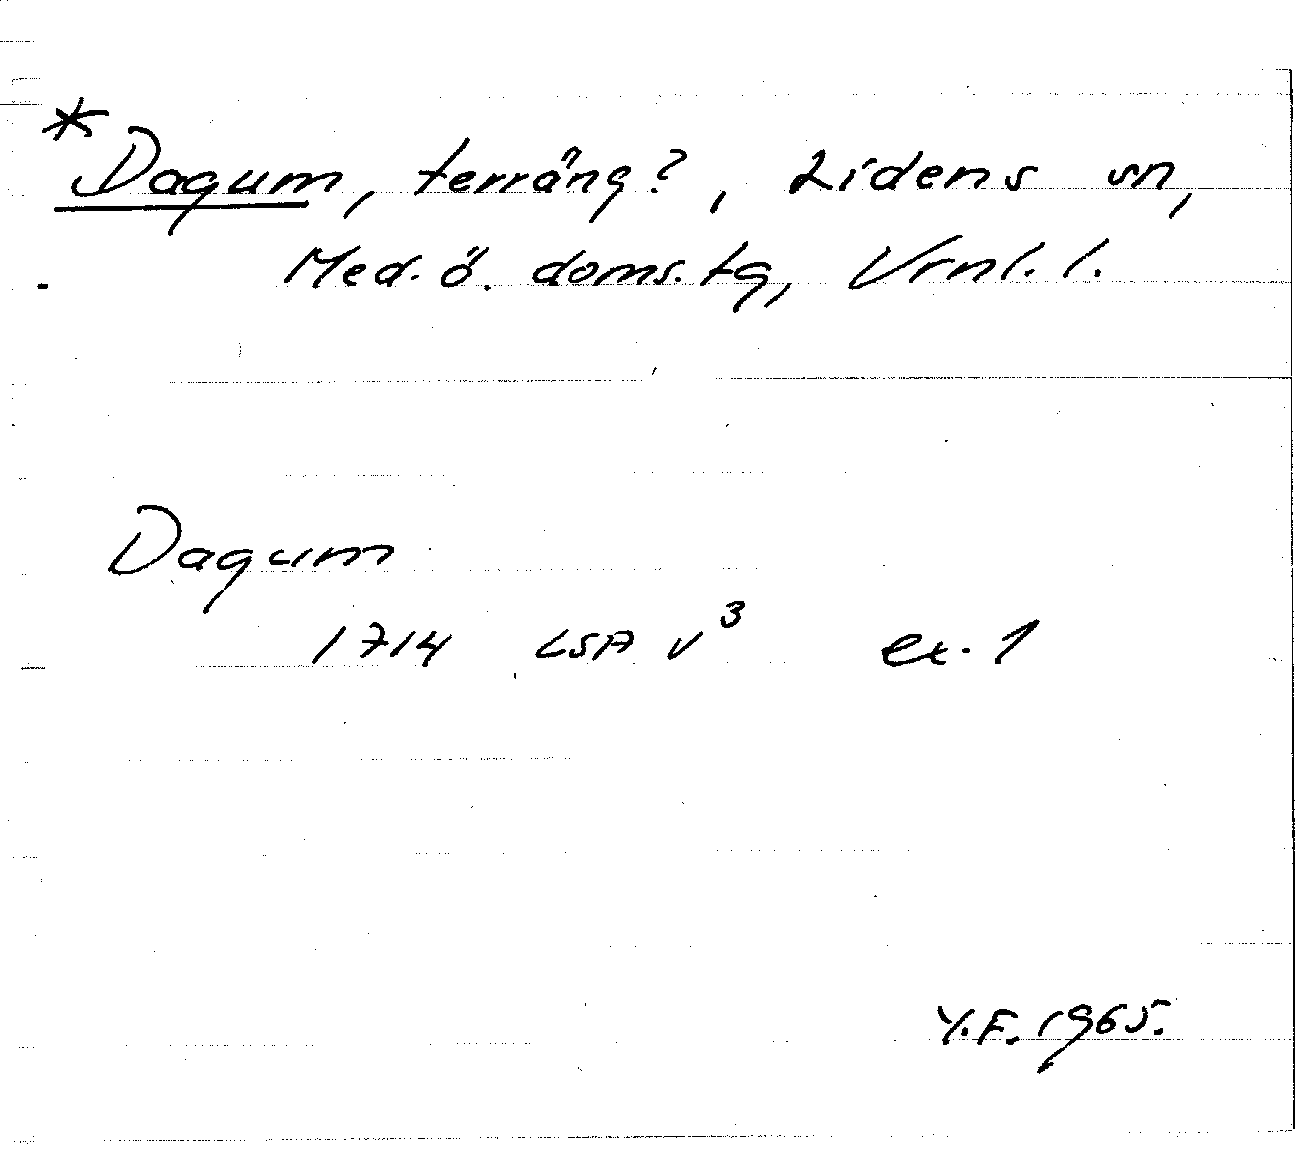 *Dagum, terräng?, Lidens sn,
Med. ö. doms. tg, Vrnl. l.
Dagum
1714 LSA V³ ex. 1
Y.F. 1965.